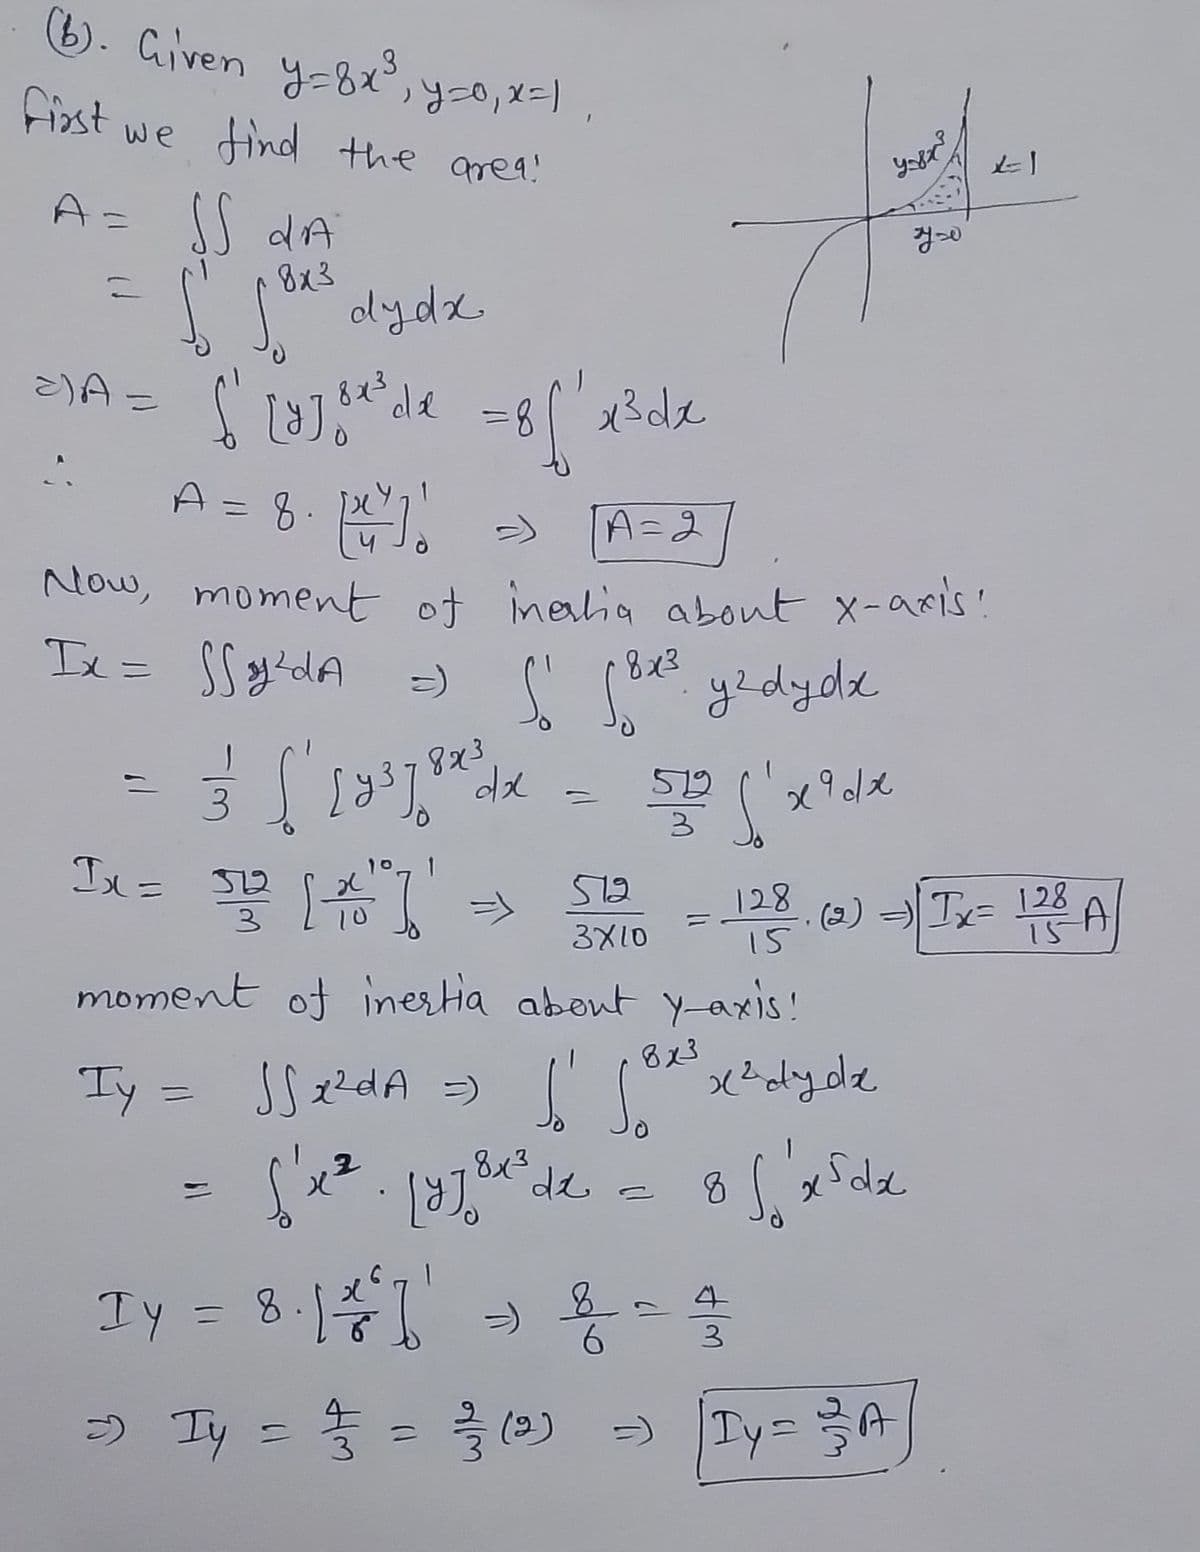 (b). Given y=8x³, y=0, x=1,
First we find the area!
y=8x³
x=1
y=0
A = ∫∫ dA
= ∫₀¹ ∫₀^8x³ dydx
=) A = ∫₀¹ [y]₀^8x³ dx = 8 ∫₀¹ x³dx
∴ A = 8. [x⁴/4]₀¹ => A=2
Now, moment of inertia about x-axis!
Ix = ∫∫ y²dA =) ∫₀¹ ∫₀^8x³ y²dydx
= 1/3 ∫₀¹ [y³]₀^8x³ dx = 512/3 ∫₀¹ x⁹dx
Ix = 512/3 [x¹⁰/10]₀¹ => 512/3X10 = 128/15 . (2) => Ix = 128/15 A
moment of inertia about y-axis!
Iy = ∫∫ x²dA =) ∫₀¹ ∫₀^8x³ x²dydx
= ∫₀¹ x² . [y]₀^8x³ dx = 8 ∫₀¹ x⁵dx
Iy = 8. [x⁶/6]₀¹ =) 8/6 = 4/3
=) Iy = 4/3 = 2/3 (2) =) Iy = 2/3 A